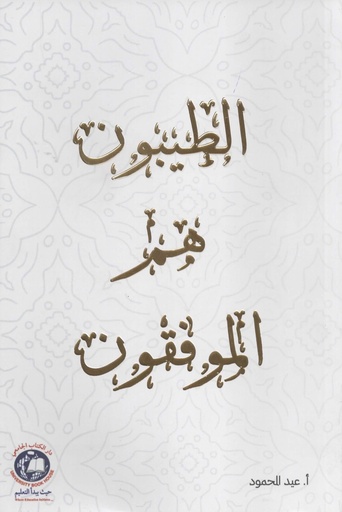 الطيبون
هم
الموفقون
أ. عيد المحمود
دار الكتاب الجامعي
UNIVERSITY BOOK HOUSE
حيث يبدأ التعليم